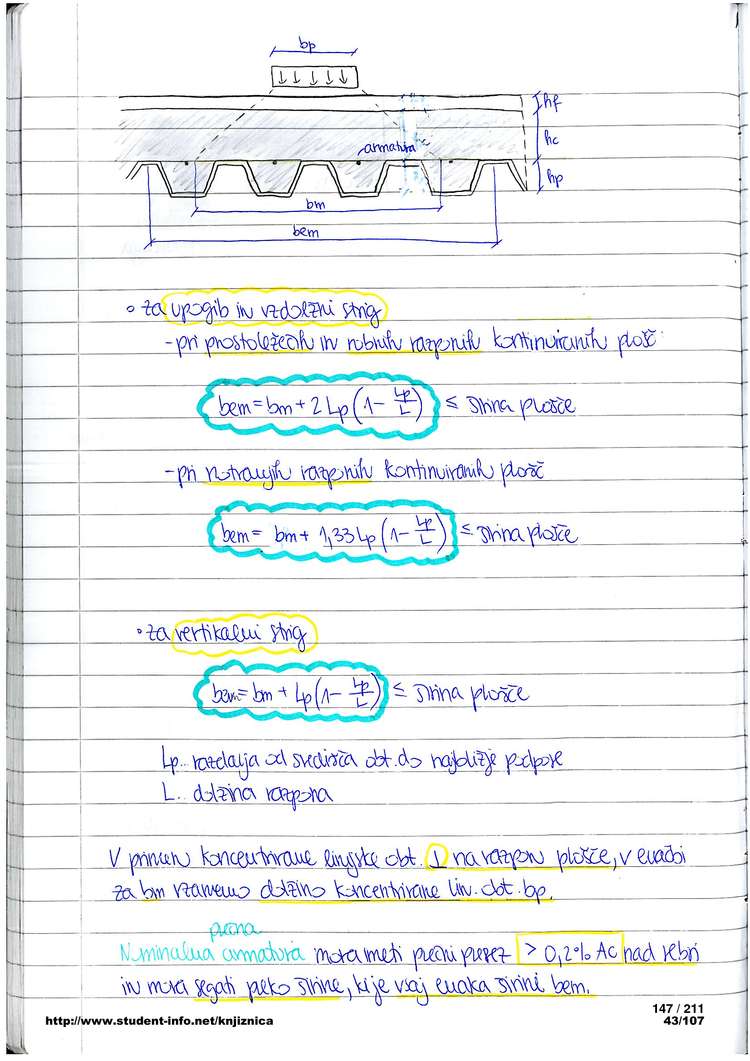 bp
hf
hc
armatura
hp
bm
bem
• za upogib in vzdolžni strig
- pri prostoležečih in robnih razponih kontinuiranih plošč:
bem = bm + 2 Lp (1 - Lp/L) ≤ širina plošče
- pri notranjih razponih kontinuiranih plošč
bem = bm + 1,33 Lp (1 - Lp/L) ≤ širina plošče
• za vertikalni strig
bem = bm + Lp (1 - Lp/L) ≤ širina plošče
Lp.. razdalja od središča obt. do najbližje podpore
L.. dolžina razpona
V primeru koncentrirane linijske obt. ⊥ na razpon plošče, v enačbi
za bm vzamemo dolžino koncentrirane lin. obt. bp.
prečna
Nominalna armatura mora imeti prečni prerez > 0,2% Ac nad rebri
in mora segati preko širine, ki je vsaj enaka širini bem.
147 / 211
http://www.student-info.net/knjiznica 43/107